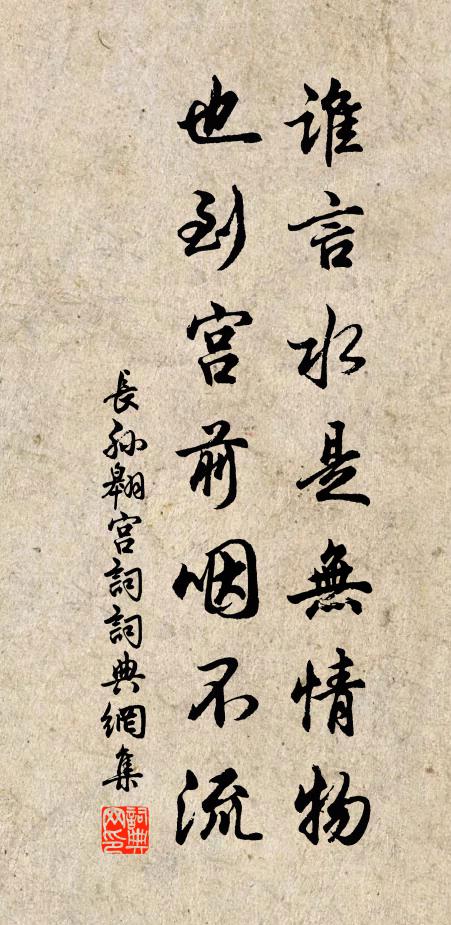 誰言水是無情物
也到宫前咽不流
長孙翱宫詞詞典網集
詞典
网印